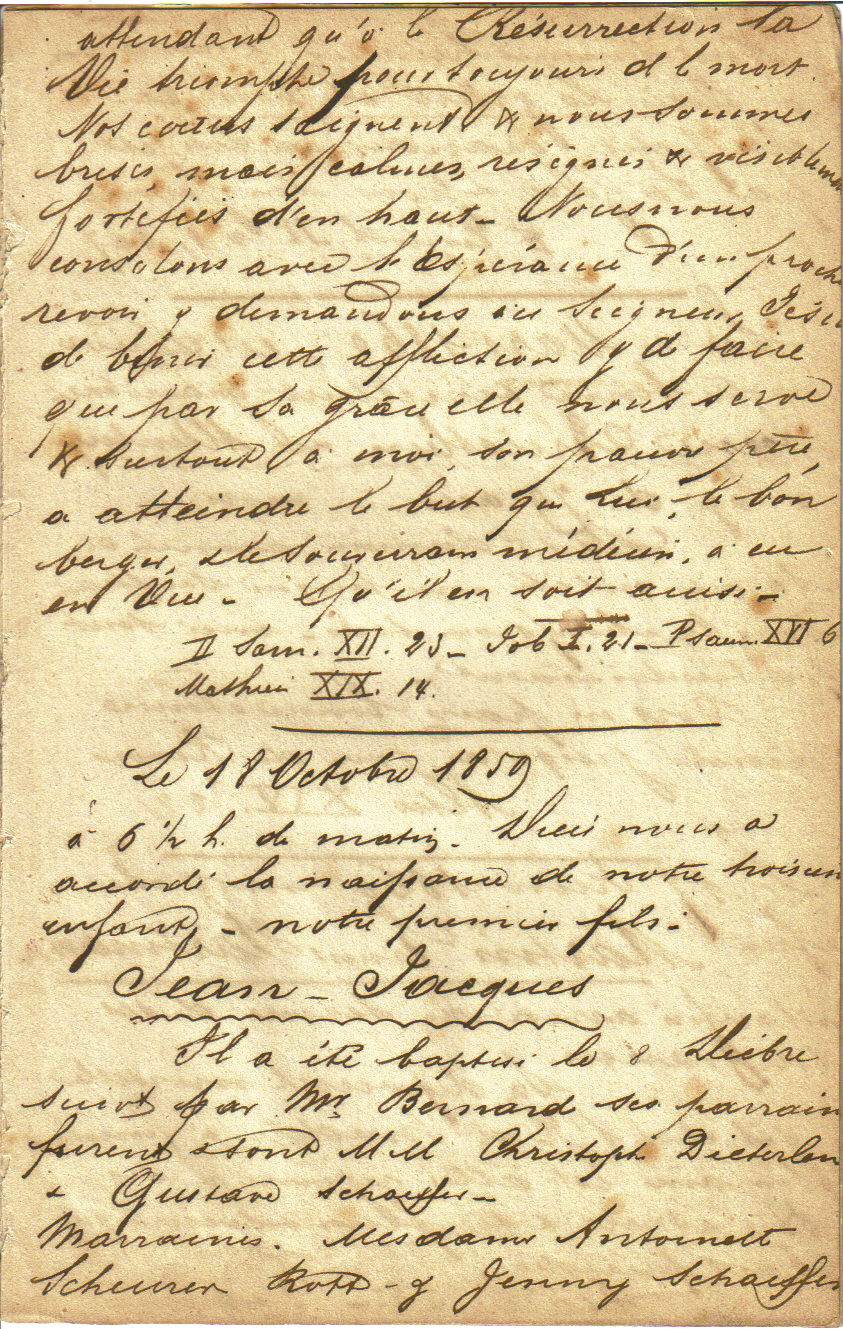 attendant qu'à la Résurrection la
Vie triomphe pour toujours d l mort.
Nos cœurs saignent & nous sommes
brisés, mais calmes, résignés &
fortifiés d'en haut – Nous nous
consolons avec l'Espérance d'un proche
revoir & demandons au Seigneur Jésus
de bénir cette affliction & d faire
que par Sa grâce elle nous serve
& surtout à moi, son pauvre père,
à atteindre le but que Lui, le bon
berger, & le Souverain médecin, a eu
en Vue – Qu'il en soit ainsi –
II Sam. XII. 23 – Job I. 21 – Psaum. XVI 6
Mathieu XIX. 14.
Le 18 Octobre 1859
à 6 ½ h. de matin. Dieu nous a
accordé la naissance de notre troisièm
enfant – notre premier fils –
Jean – Jacques
Il a été baptisé le 8 Décbre
suivt par Mr Bernard ses parrain
furent & sont MM Christophe Dieterlen
& Gustave Schaeffer –
Marraines. Mesdames Antoinett
Scheurer Rott – & Jenny Schaeffer